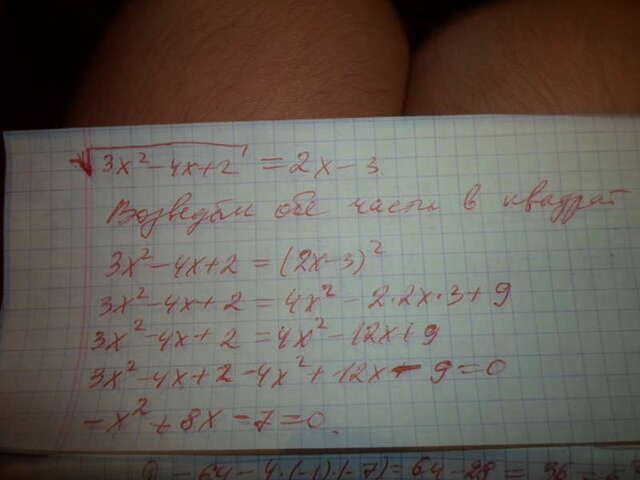 √3x²-4x+2 = 2x-3
Возведём обе части в квадрат
3x²-4x+2 = (2x-3)²
3x²-4x+2 = 4x²-2·2x·3+9
3x²-4x+2 = 4x²-12x+9
3x²-4x+2-4x²+12x-9=0
-x²+8x-7=0.
D = 64-4·(-1)·(-7)=64-28=36